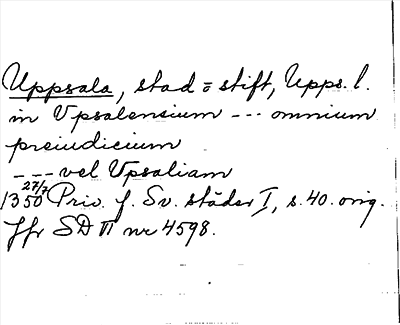 Uppsala, stad o stift, Upps. l.
in Vpsalensium --- omnium
preiudicium
--- vel Vpsaliam
1350 27/7 Priv. f. Sv. städer I, s. 40. orig.
Jfr SD VI nr 4598.